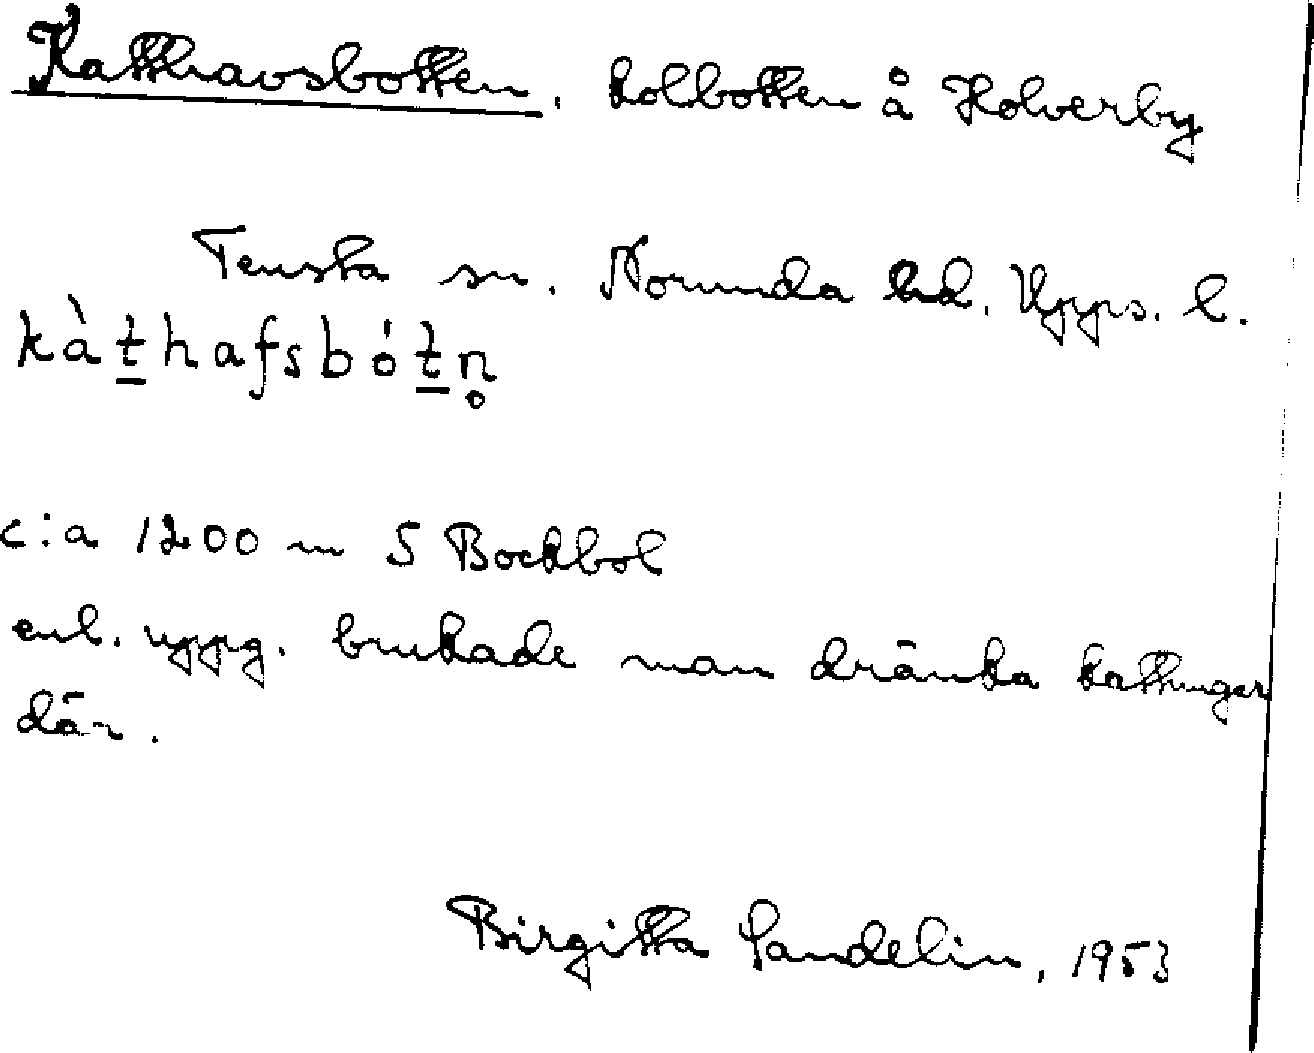 Katthavsbotten. kolbotten å Holverby
Tensta sn. Norunda hd. Upps. l.
kàt̲hafsbót̲n̥
c:a 1200 m S Bockbol
enl. uppg. brukade man dränka kattungar
där.
Birgitta Sandelin, 1953